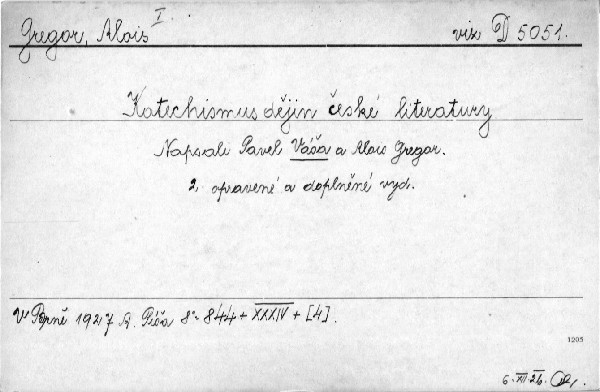 Gregor, Alois I
viz D 5051.
Katechismus dějin české literatury
Napsali Pavel Váša a Alois Gregor.
2. opravené a doplněné vyd.
V Brně 1927 A. Píša 8° 844 + XXXIV + [4].
1205
6. XII. 26.